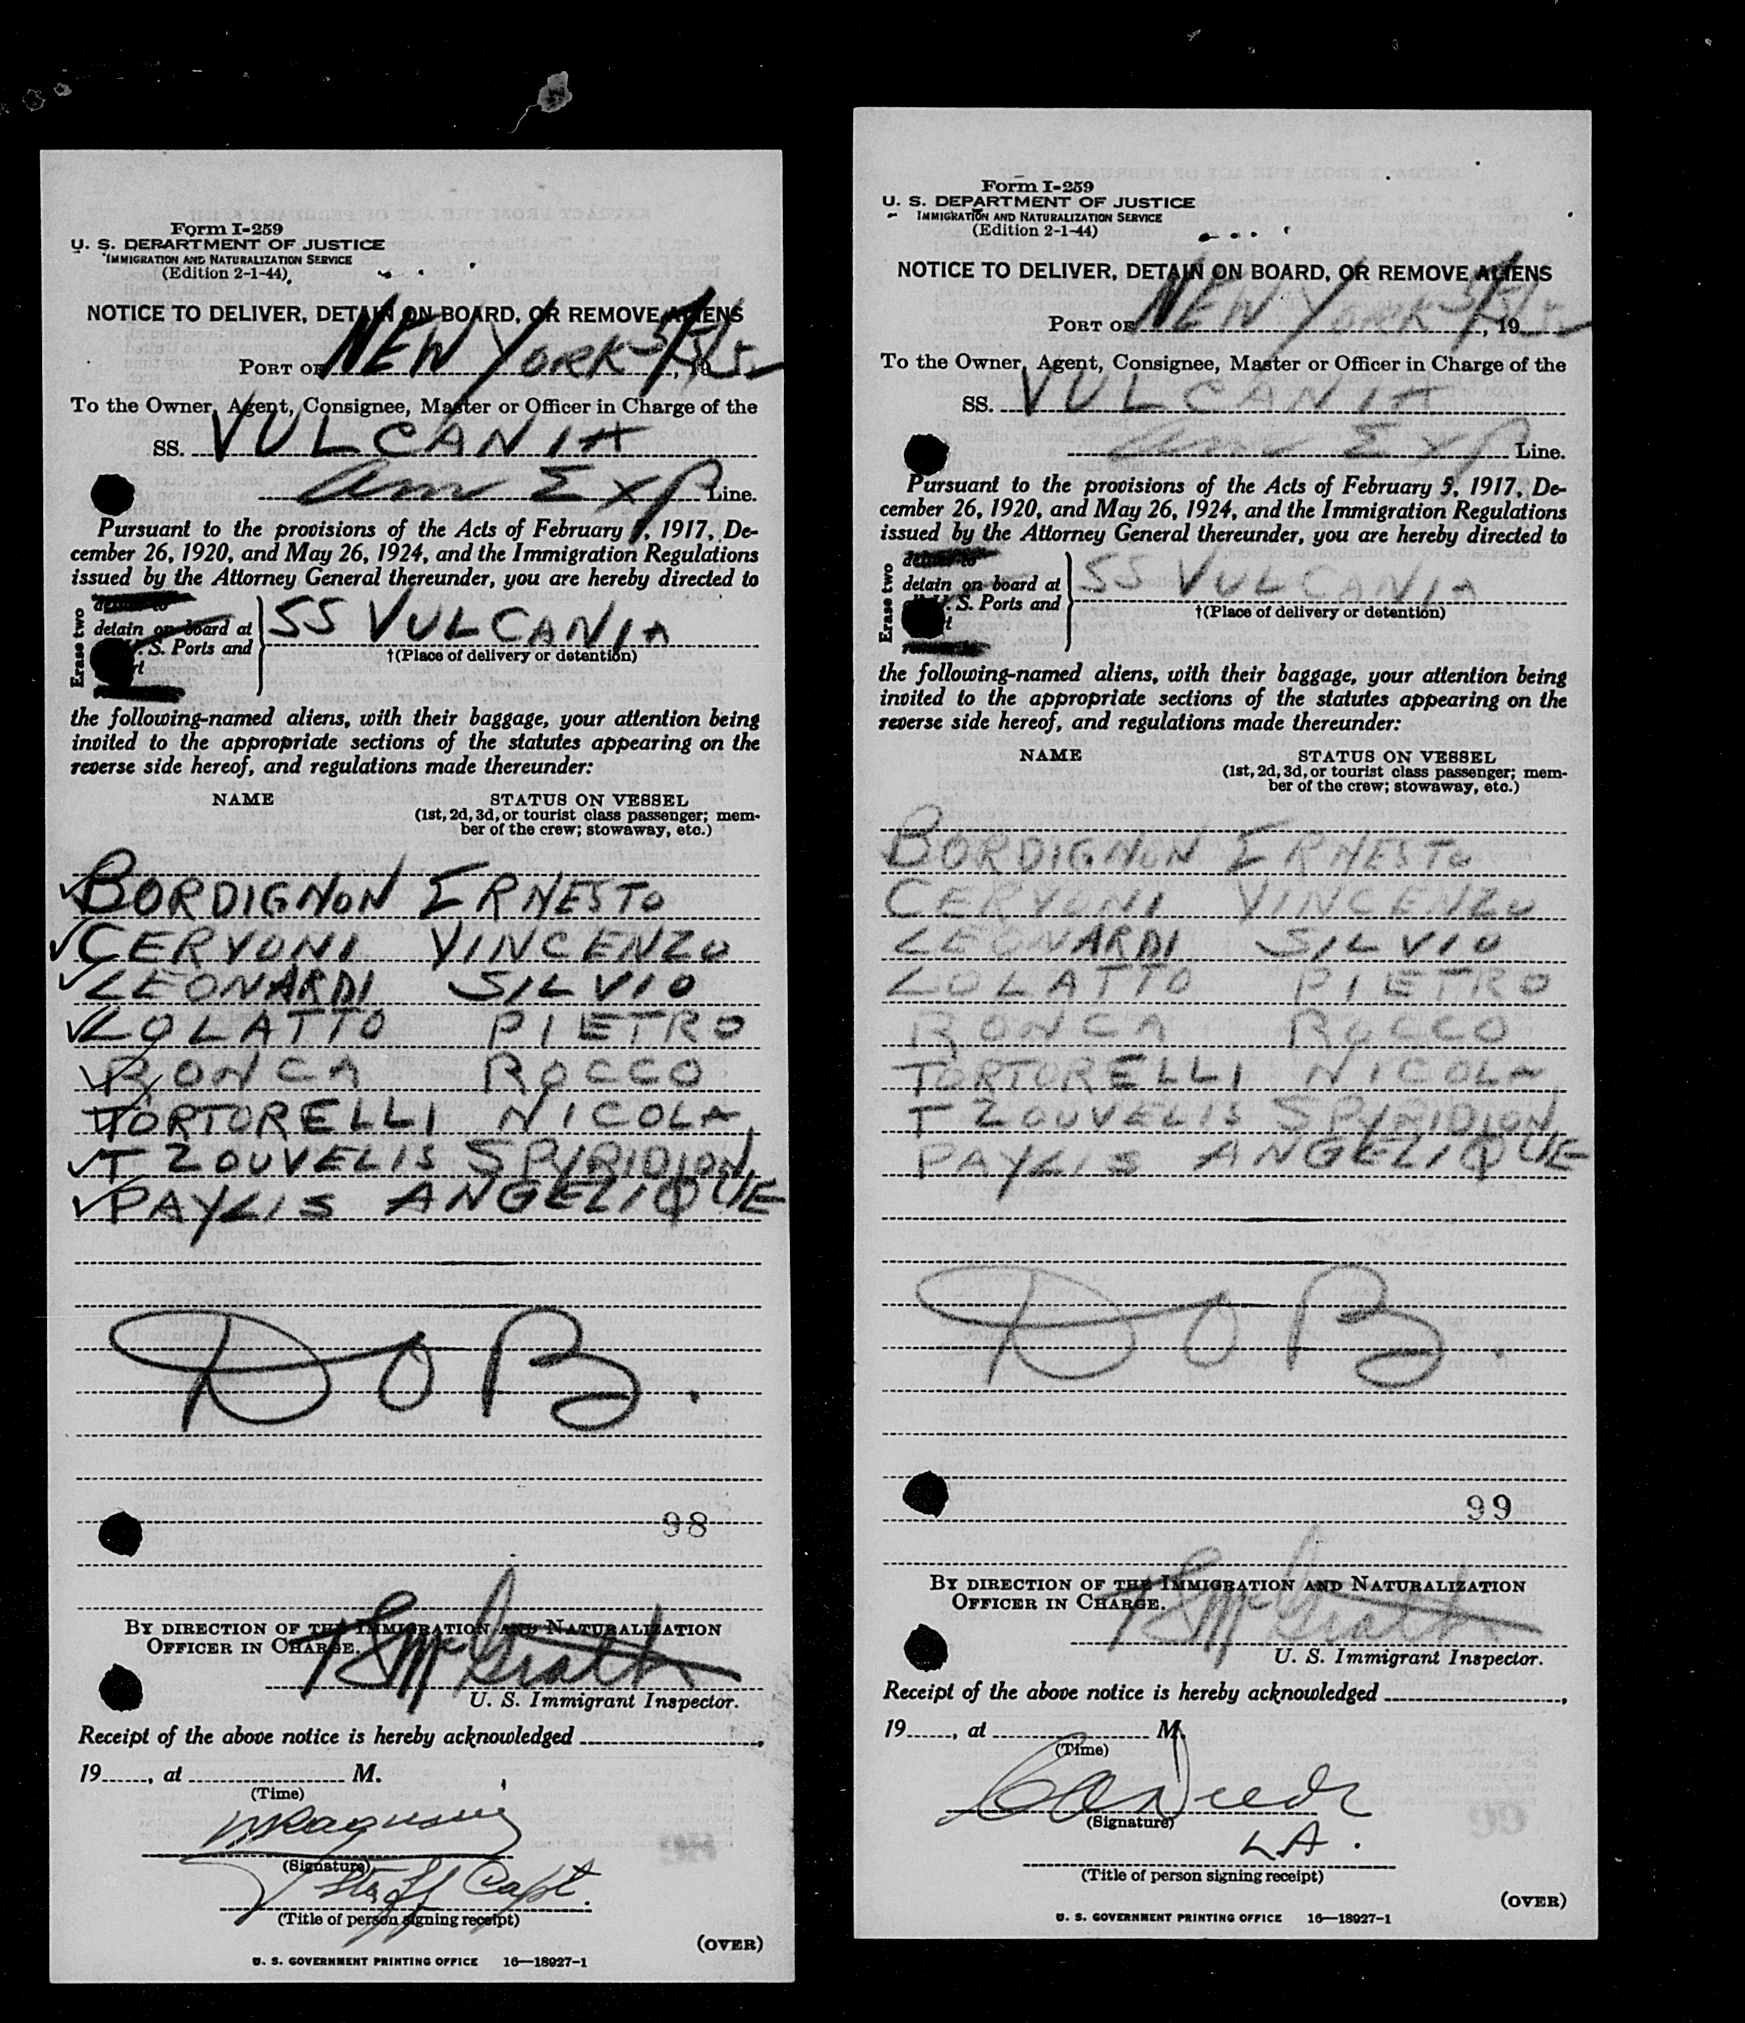 Form I-259
U. S. DEPARTMENT OF JUSTICE
IMMIGRATION AND NATURALIZATION SERVICE
(Edition 2-1-44)
NOTICE TO DELIVER, DETAIN ON BOARD, OR REMOVE ALIENS
PORT OF NEW YORK 5/5/52
To the Owner, Agent, Consignee, Master or Officer in Charge of the
SS. VULCANIA
Am Exp Line.
Pursuant to the provisions of the Acts of February 5, 1917, De-
cember 26, 1920, and May 26, 1924, and the Immigration Regulations
issued by the Attorney General thereunder, you are hereby directed to
Erase two
detain on board at
S. Ports and
SS VULCANIA
†(Place of delivery or detention)
the following-named aliens, with their baggage, your attention being
invited to the appropriate sections of the statutes appearing on the
reverse side hereof, and regulations made thereunder:
NAME STATUS ON VESSEL
(1st, 2d, 3d, or tourist class passenger; mem-
ber of the crew; stowaway, etc.)
✓BORDIGNON ERNESTO
✓CERVONI VINCENZO
✓LEONARDI SILVIO
✓LOLATTO PIETRO
✓RONCA ROCCO
TORTORELLI NICOLA
✓TZOUVELIS SPYRIDION
✓PAYLIS ANGELIQUE
DOB.
98
BY DIRECTION OF THE IMMIGRATION AND NATURALIZATION
OFFICER IN CHARGE.
McGrath
U. S. Immigrant Inspector.
Receipt of the above notice is hereby acknowledged
19 , at M.
(Time)
(Signature)
Staff Capt.
(Title of person signing receipt)
(OVER)
U. S. GOVERNMENT PRINTING OFFICE 16—18927-1
Form I-259
U. S. DEPARTMENT OF JUSTICE
IMMIGRATION AND NATURALIZATION SERVICE
(Edition 2-1-44)
NOTICE TO DELIVER, DETAIN ON BOARD, OR REMOVE ALIENS
PORT OF NEW YORK 5/5/52, 19
To the Owner, Agent, Consignee, Master or Officer in Charge of the
SS. VULCANIA
Am Exp Line.
Pursuant to the provisions of the Acts of February 5, 1917, De-
cember 26, 1920, and May 26, 1924, and the Immigration Regulations
issued by the Attorney General thereunder, you are hereby directed to
Erase two
detain on board at
S. Ports and
SS VULCANIA
†(Place of delivery or detention)
the following-named aliens, with their baggage, your attention being
invited to the appropriate sections of the statutes appearing on the
reverse side hereof, and regulations made thereunder:
NAME STATUS ON VESSEL
(1st, 2d, 3d, or tourist class passenger; mem-
ber of the crew; stowaway, etc.)
BORDIGNON ERNESTO
CERVONI VINCENZO
LEONARDI SILVIO
LOLATTO PIETRO
RONCA ROCCO
TORTORELLI NICOLA
TZOUVELIS SPYRIDION
PAYLIS ANGELIQUE
DOB.
99
BY DIRECTION OF THE IMMIGRATION AND NATURALIZATION
OFFICER IN CHARGE.
McGrath
U. S. Immigrant Inspector.
Receipt of the above notice is hereby acknowledged ,
19 , at M.
(Time)
(Signature)
LA.
(Title of person signing receipt)
(OVER)
U. S. GOVERNMENT PRINTING OFFICE 16—18927-1